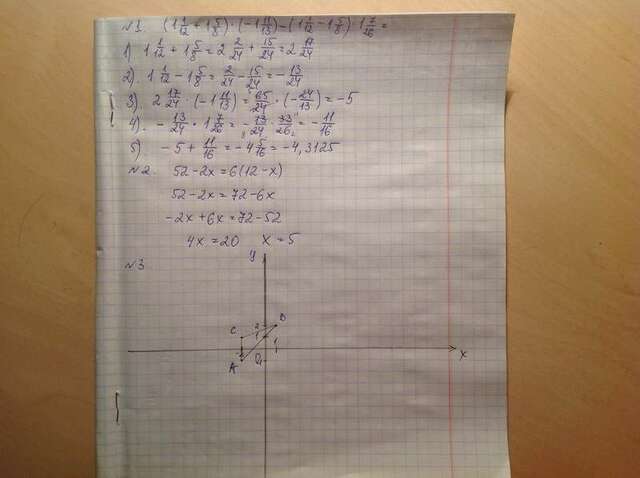 №1. (1 1/12 + 1 5/8) · (-1 11/13) - (1 1/12 - 1 5/8) · 1 7/26 =
1) 1 1/12 + 1 5/8 = 2 2/24 + 15/24 = 2 17/24
2) 1 1/12 - 1 5/8 = 2/24 - 15/24 = - 13/24
3) 2 17/24 · (-1 11/13) = 65/24 · (- 24/13) = -5
4) - 13/24 · 1 7/26 = - 13/24 · 33/26 = - 11/16
5) -5 + 11/16 = -4 5/16 = -4,3125
№2. 52 - 2x = 6(12 - x)
52 - 2x = 72 - 6x
-2x + 6x = 72 - 52
4x = 20 x = 5
№3
y
C 2 B
1 1
A 0 x